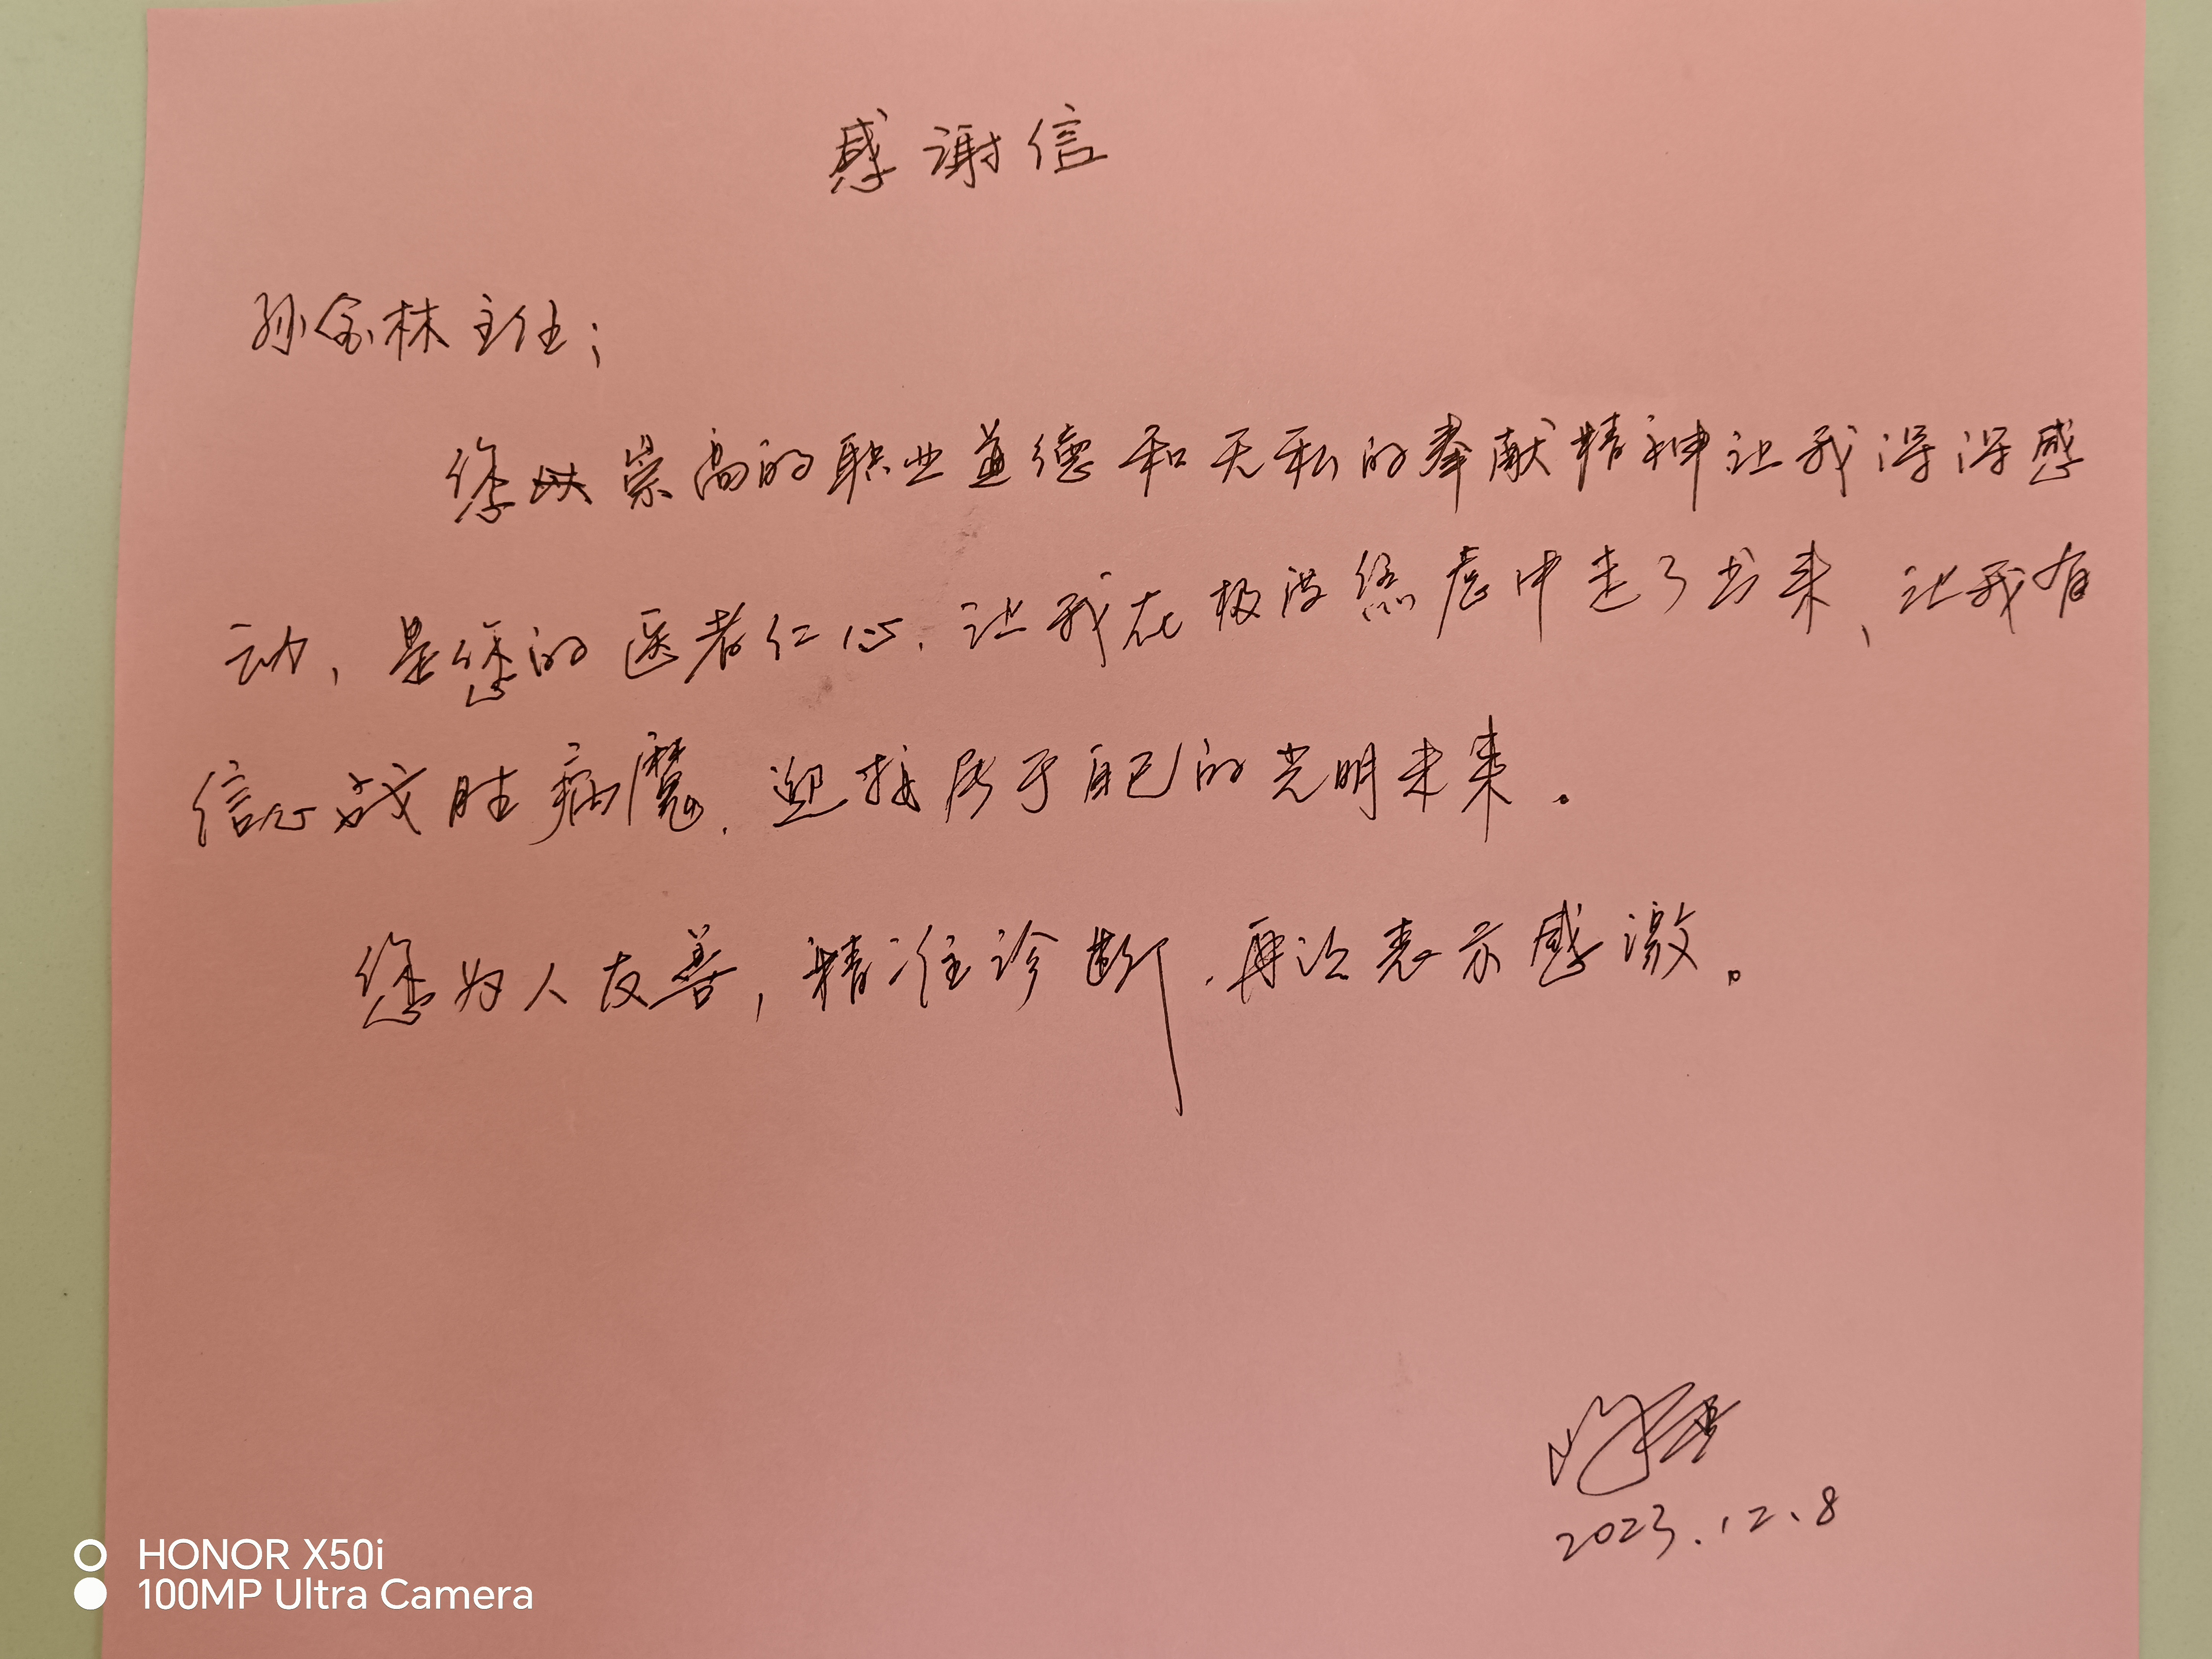 感谢信
孙金林主任；
您以崇高的职业道德和无私的奉献精神让我深深感
动，是您的医者仁心，让我在极度焦虑中走了出来、让我有
信心战胜病魔，迎接属于自己的光明未来。
您为人友善，精准诊断，再次表示感激。
2023.12.8
HONOR X50i
100MP Ultra Camera